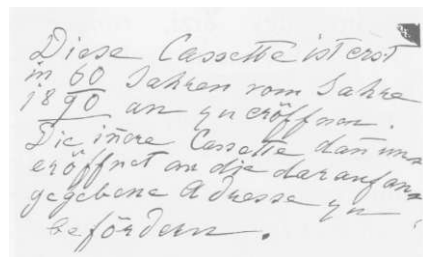 Diese Cassette ist erst
in 60 Jahren vom Jahre
1890 an zu eröffnen.
Die iñere Cassette dañ
eröffnet an die darauf
gegebene Adresse zu
befördern.